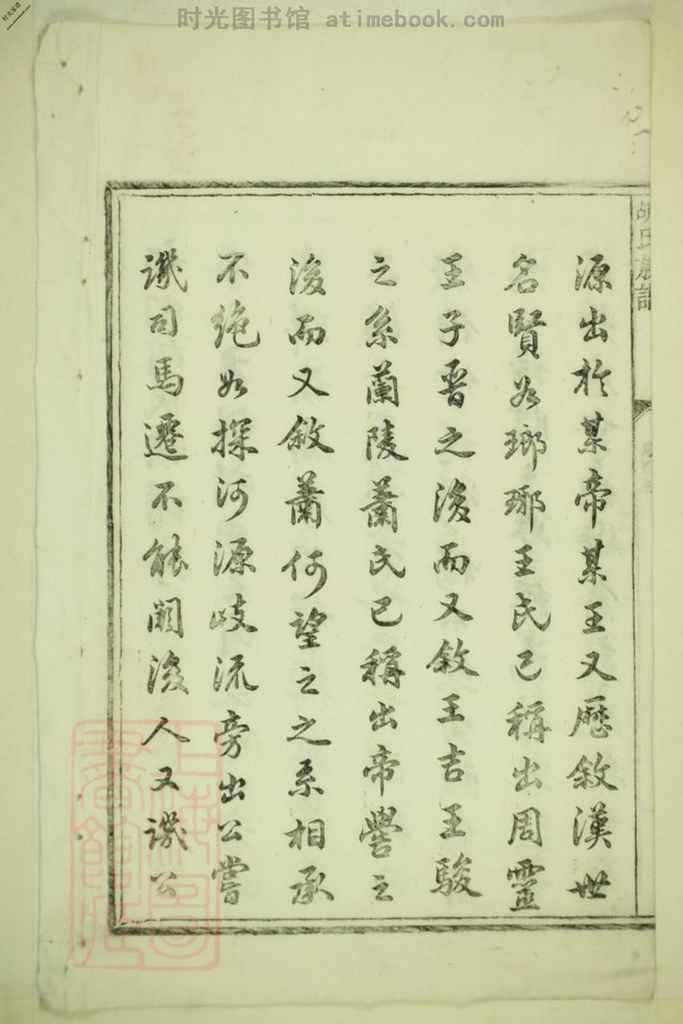 时光图书馆 atimebook.com
源出於某帝某王又歷敘漢世
名賢如瑯琊王氏已稱出周靈
王子晉之後而又敘王吉王駿
之系蘭陵蕭氏已稱出帝嚳之
後而又敘蕭何望之之系相承
不絶如探河源歧流旁出公嘗
譏司馬遷不能闕後人又譏公
胡氏族譜